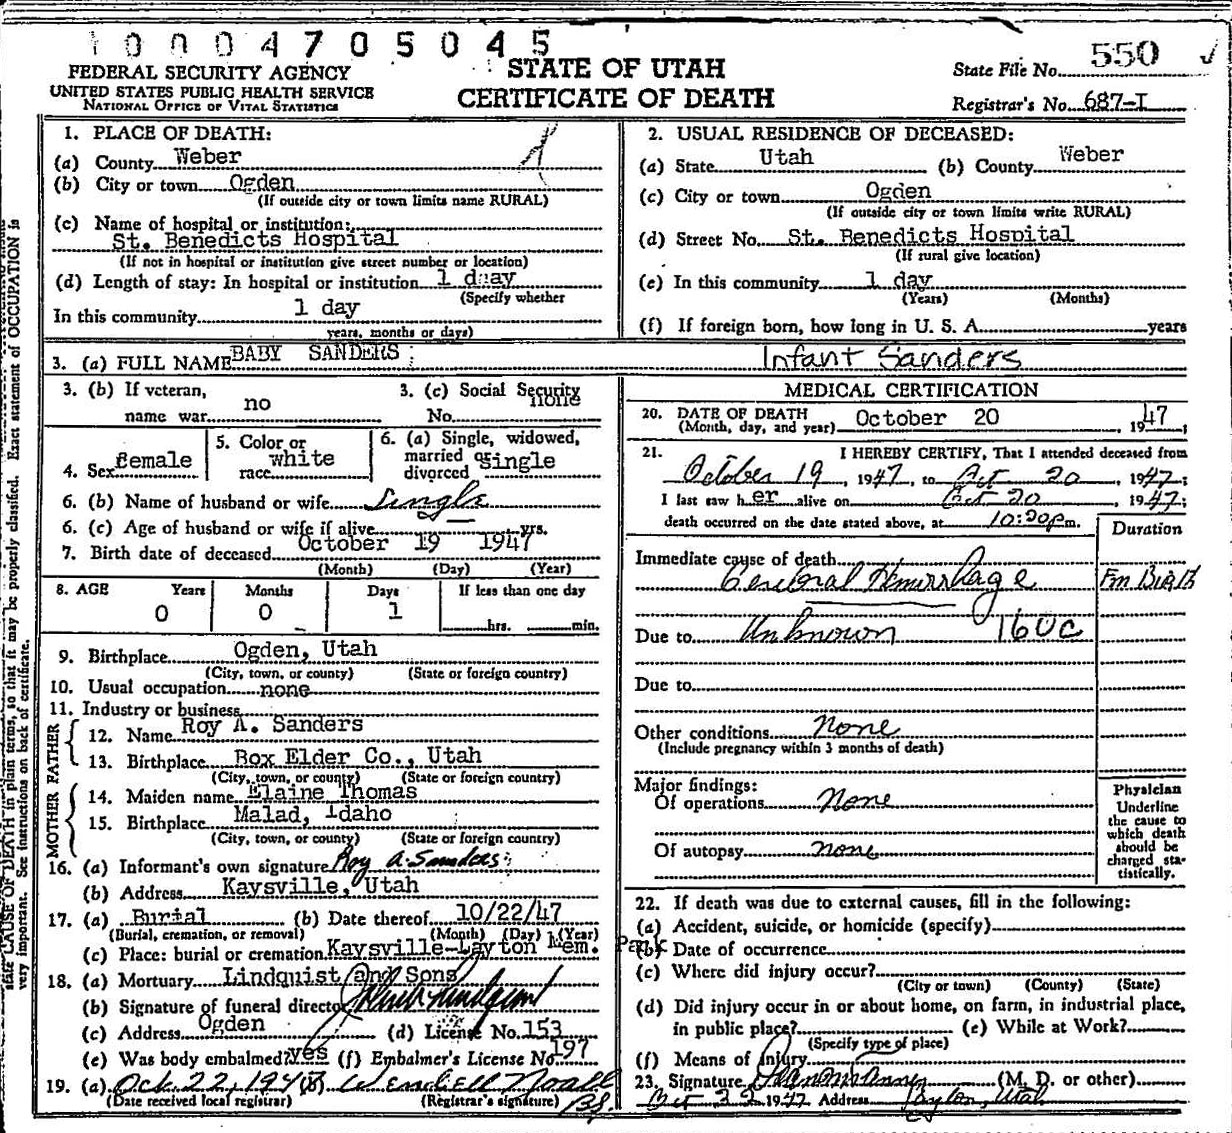 10004705045
FEDERAL SECURITY AGENCY
UNITED STATES PUBLIC HEALTH SERVICE
NATIONAL OFFICE OF VITAL STATISTICS
STATE OF UTAH
CERTIFICATE OF DEATH
State File No. 550
Registrar's No. 687-I
1. PLACE OF DEATH:
(a) County Weber
(b) City or town Ogden
(If outside city or town limits name RURAL)
(c) Name of hospital or institution:
St. Benedicts Hospital
(If not in hospital or institution give street number or location)
(d) Length of stay: In hospital or institution 1 day
(Specify whether
In this community 1 day
years, months or days)
2. USUAL RESIDENCE OF DECEASED:
(a) State Utah (b) County Weber
(c) City or town Ogden
(If outside city or town limits write RURAL)
(d) Street No. St. Benedicts Hospital
(If rural give location)
(e) In this community 1 day
(Years) (Months)
(f) If foreign born, how long in U. S. A. years
3. (a) FULL NAME BABY SANDERS Infant Sanders
3. (b) If veteran, name war no
3. (c) Social Security No. none
4. Sex female
5. Color or race white
6. (a) Single, widowed, married or divorced single
6. (b) Name of husband or wife Single
6. (c) Age of husband or wife if alive yrs.
7. Birth date of deceased October 19 1947
(Month) (Day) (Year)
8. AGE Years Months Days If less than one day
0 0 1 hrs. min.
9. Birthplace Ogden, Utah
(City, town, or county) (State or foreign country)
10. Usual occupation none
11. Industry or business
FATHER
12. Name Roy A. Sanders
13. Birthplace Box Elder Co., Utah
(City, town, or county) (State or foreign country)
MOTHER
14. Maiden name Elaine Thomas
15. Birthplace Malad, Idaho
(City, town, or county) (State or foreign country)
16. (a) Informant's own signature Roy A. Sanders
(b) Address Kaysville, Utah
17. (a) Burial (b) Date thereof 10/22/47
(Burial, cremation, or removal) (Month) (Day) (Year)
(c) Place: burial or cremation Kaysville-Layton Mem. Park
18. (a) Mortuary Lindquist and Sons
(b) Signature of funeral director
(c) Address Ogden (d) License No. 153
(e) Was body embalmed? yes (f) Embalmer's License No. 197
19. (a) Oct. 22, 1947 (b) Wendell Noall
(Date received local registrar) (Registrar's signature)
MEDICAL CERTIFICATION
20. DATE OF DEATH October 20, 1947;
(Month, day, and year)
21. I HEREBY CERTIFY, That I attended deceased from
October 19, 1947, to Oct 20, 1947;
I last saw her alive on Oct 20 1947;
death occurred on the date stated above, at 10:20pm.
Duration
Immediate cause of death
Cerebral Hemurrhage Fm Birth
Due to Unknown 160c
Due to
Other conditions None
(Include pregnancy within 3 months of death)
Major findings:
Of operations None
Of autopsy none
Physician
Underline
the cause to
which death
should be
charged sta-
tistically.
22. If death was due to external causes, fill in the following:
(a) Accident, suicide, or homicide (specify)
(b) Date of occurrence
(c) Where did injury occur?
(City or town) (County) (State)
(d) Did injury occur in or about home, on farm, in industrial place,
in public place? (e) While at Work?
(Specify type of place)
(f) Means of Injury
23. Signature (M. D. or other)
Oct 22 1947 Address Layton, Utah
state CAUSE OF DEATH in plain terms, so that it may be properly classified. Exact statement of OCCUPATION is
very important. See instructions on back of certificate.